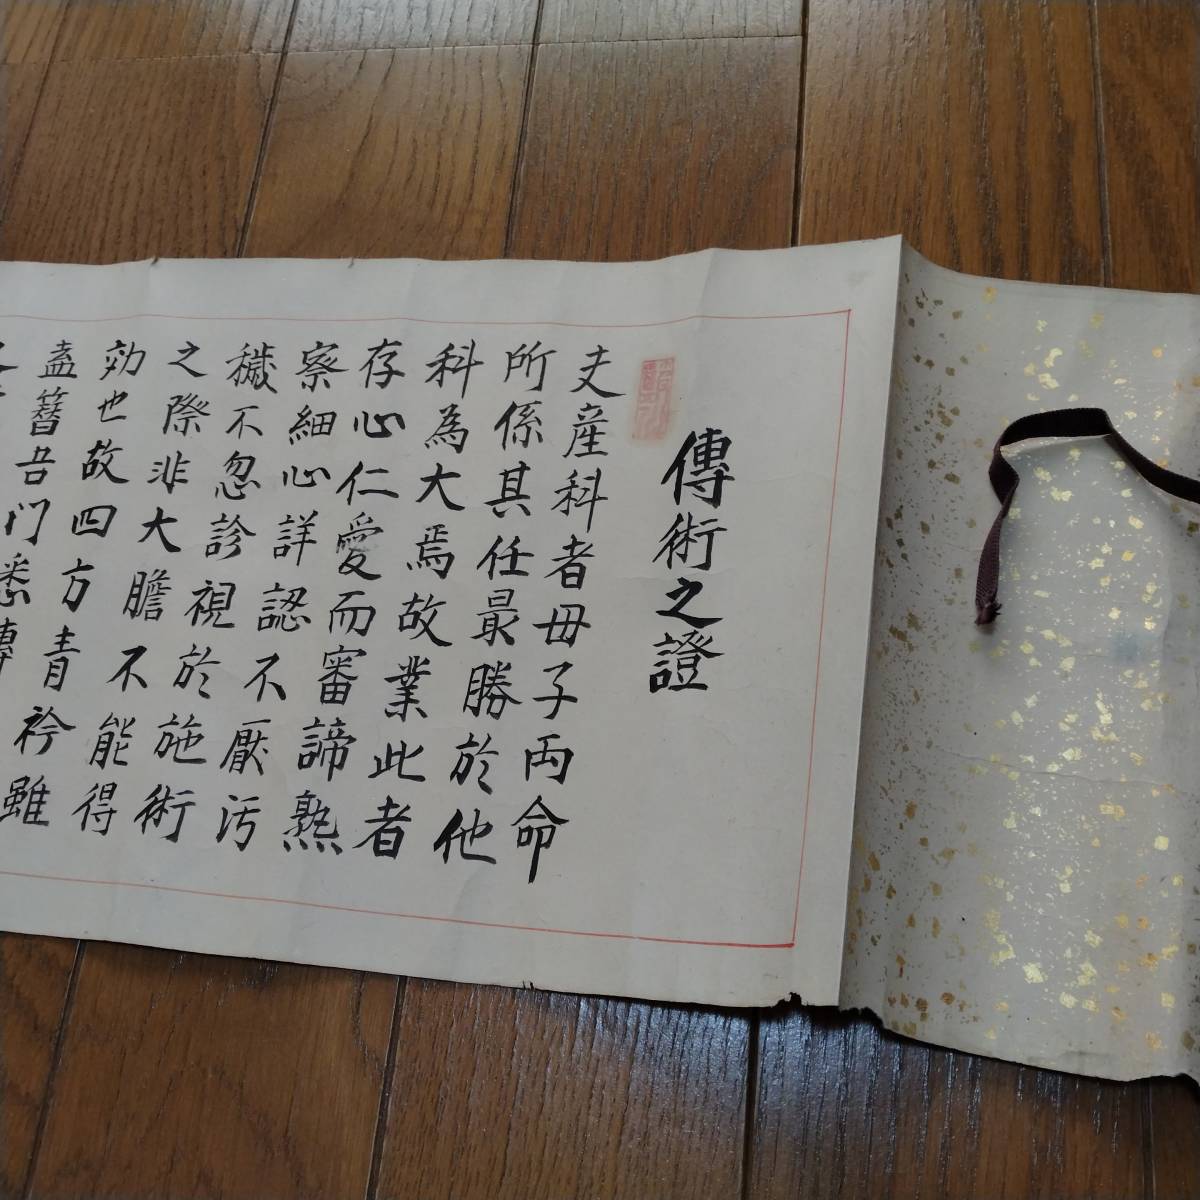 傳術之證
夫産科者母子両命
所係其任最勝於他
科為大焉故業此者
存心仁愛而審諦熟
察細心詳認不厭汚
穢不忽診視於施術
之際非大膽不能得
効也故四方青衿雖
盍簪吾門悉傳